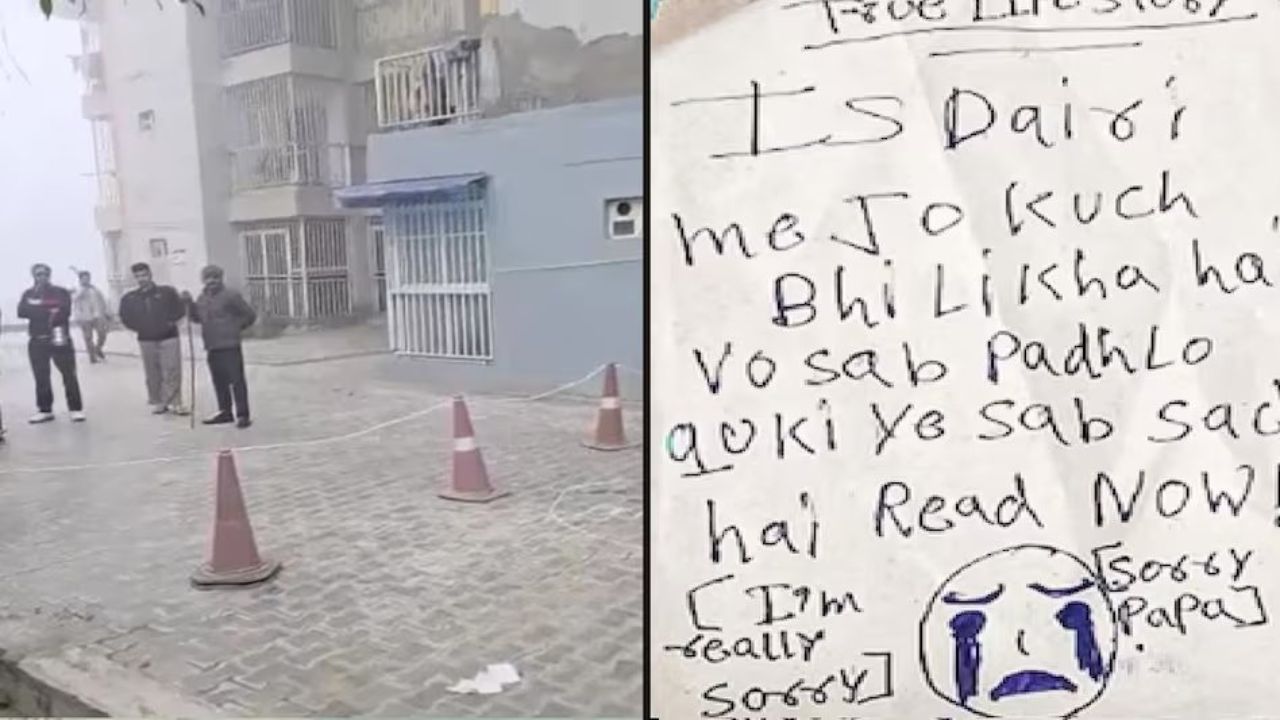 True Life Story
Is Dairi
me Jo Kuch
Bhi Likha ha
Vo sab Padh Lo
quki Ye Sab Sac
hai Read NOW!
[I'm
really
sorry]
[Sorry
Papa]